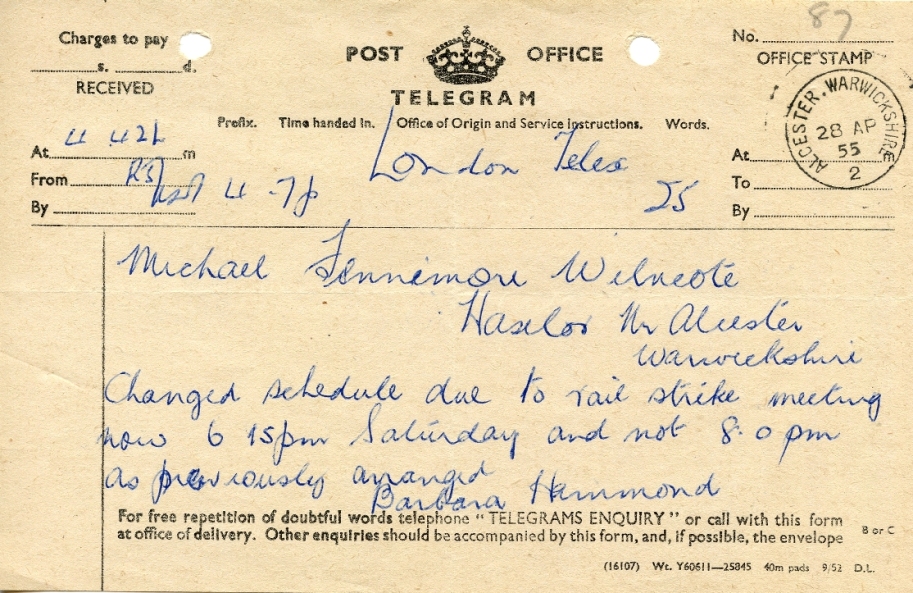 87
Charges to pay
s. d.
RECEIVED
POST OFFICE
TELEGRAM
No.
OFFICE STAMP
ALCESTER. WARWICKSHIRE
28 AP
55
2
Prefix. Time handed in. Office of Origin and Service Instructions. Words.
At 4 42 m
From
By
4-7p
London Telex
25
At
To
By
Michael Fennimore Wilncote
Haselor Nr Alcester
Warwickshire
Changed schedule due to rail strike meeting
now 6 15pm Saturday and not 8.0pm
as previously arranged
Barbara Hammond
For free repetition of doubtful words telephone "TELEGRAMS ENQUIRY" or call with this form
at office of delivery. Other enquiries should be accompanied by this form, and, if possible, the envelope
B or C
(16107) Wt. Y60611—25845 40m pads 9/52 D.L.